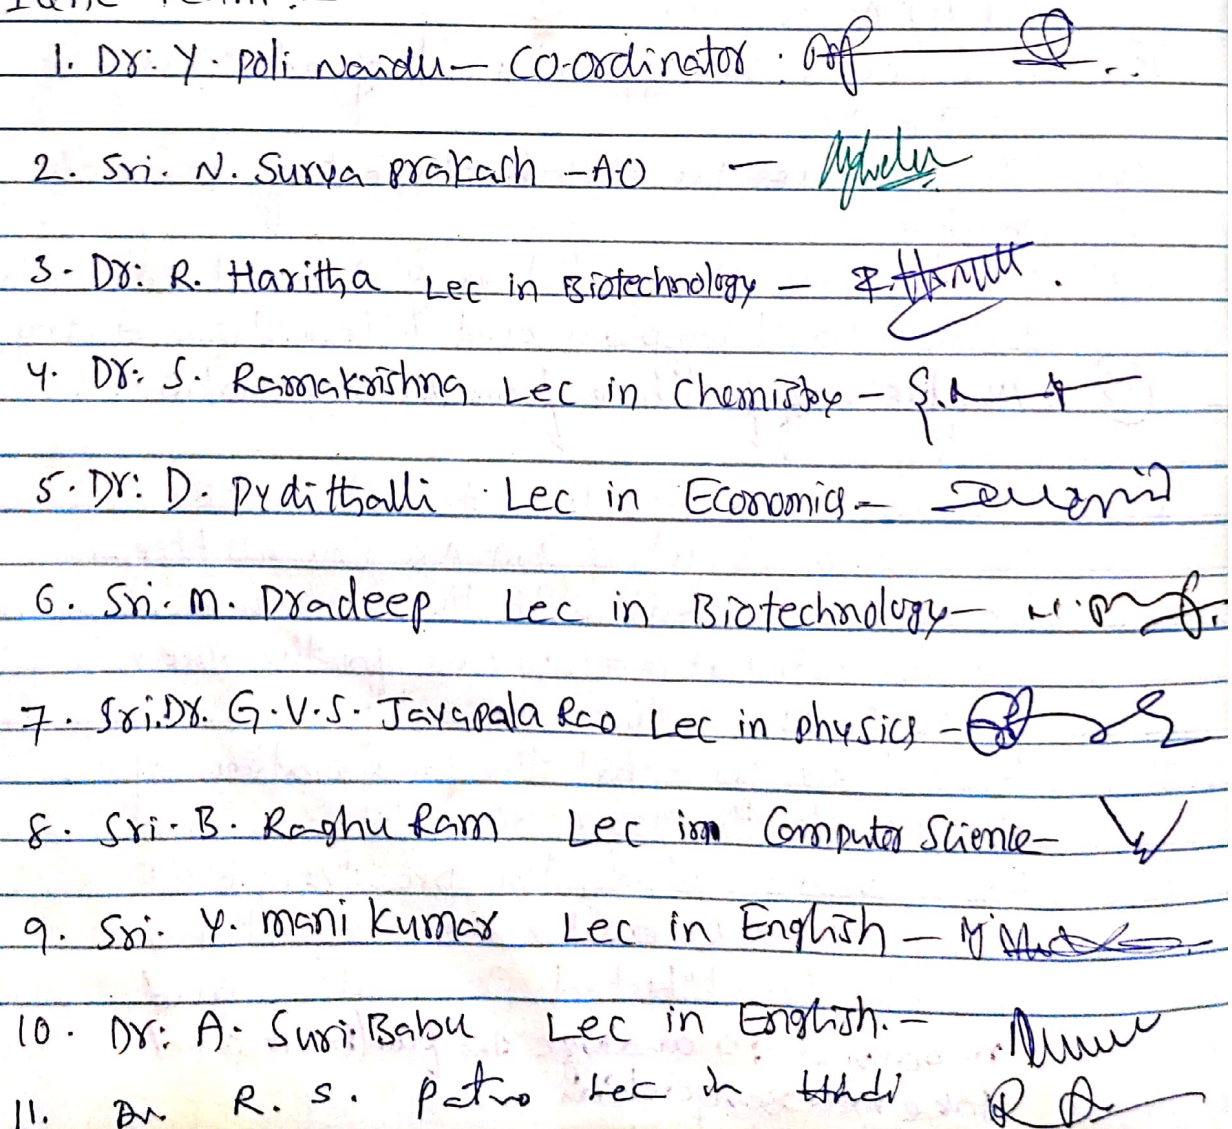 1. Dr: Y. Poli Naidu - Co-ordinator :
2. Sri. N. Surya prakash - AO -
3. Dr: R. Haritha Lec in Biotechnology -
4. Dr: S. Ramakrishna Lec in Chemistry -
5. Dr: D. Pydithalli Lec in Economics -
6. Sri. M. Pradeep Lec in Biotechnology -
7. Sri. Dr. G.V.S. Jayapala Rao Lec in physics -
8. Sri. B. Raghu Ram Lec in Computer Science -
9. Sri. Y. mani kumar Lec in English -
10. Dr: A. Suri Babu Lec in English. -
11. Dr. R. S. Patro Lec in Hindi